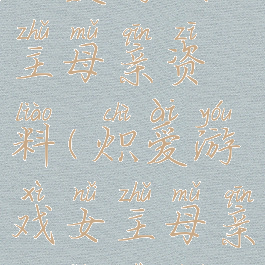 zhǔ mǔ qīn zī
主母亲资
liào chì ài yóu
料(炽爱游
xì nǚ zhǔ mǔ qīn
戏女主母亲